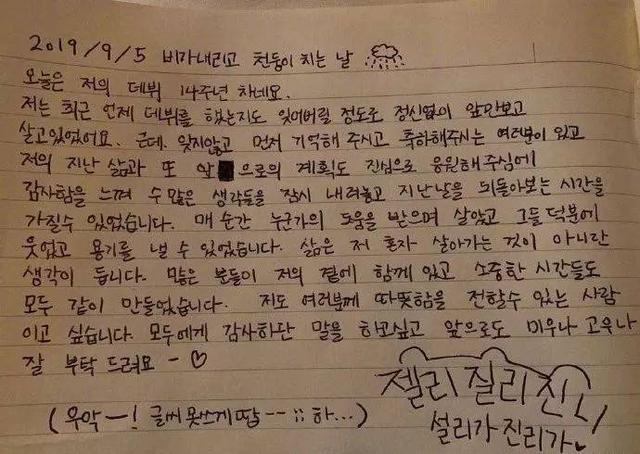 2019/9/5 비가내리고 천둥이 치는 날
오늘은 저의 데뷔 14주년 차네요.
저는 최근 언제 데뷔를 했는지도 잊어버릴 정도로 정신없이 앞만보고
살고있었어요. 근데. 잊지않고 먼저 기억해 주시고 축하해주시는 여러분이 있고
저의 지난 삶과 또 앞으로의 계획도 진심으로 응원해주심에
감사함을 느껴 수많은 생각들을 잠시 내려놓고 지난날을 뒤돌아보는 시간을
가질수 있었습니다. 매 순간 누군가의 도움을 받으며 살았고 그들 덕분에
웃었고 용기를 낼 수 있었습니다. 삶은 저 혼자 살아가는 것이 아니란
생각이 듭니다. 많은 분들이 저의 곁에 함께 있고 소중한 시간들도
모두 같이 만들었습니다. 저도 여러분께 따뜻함을 전할수 있는 사람
이고 싶습니다. 모두에게 감사하단 말을 하고싶고 앞으로도 미우나 고우나
잘 부탁 드려요 - ♡
(우악ㅡ! 글씨 못쓰게땀 --;; 하...)
젤리 질리 진리
설리가 진리가♥